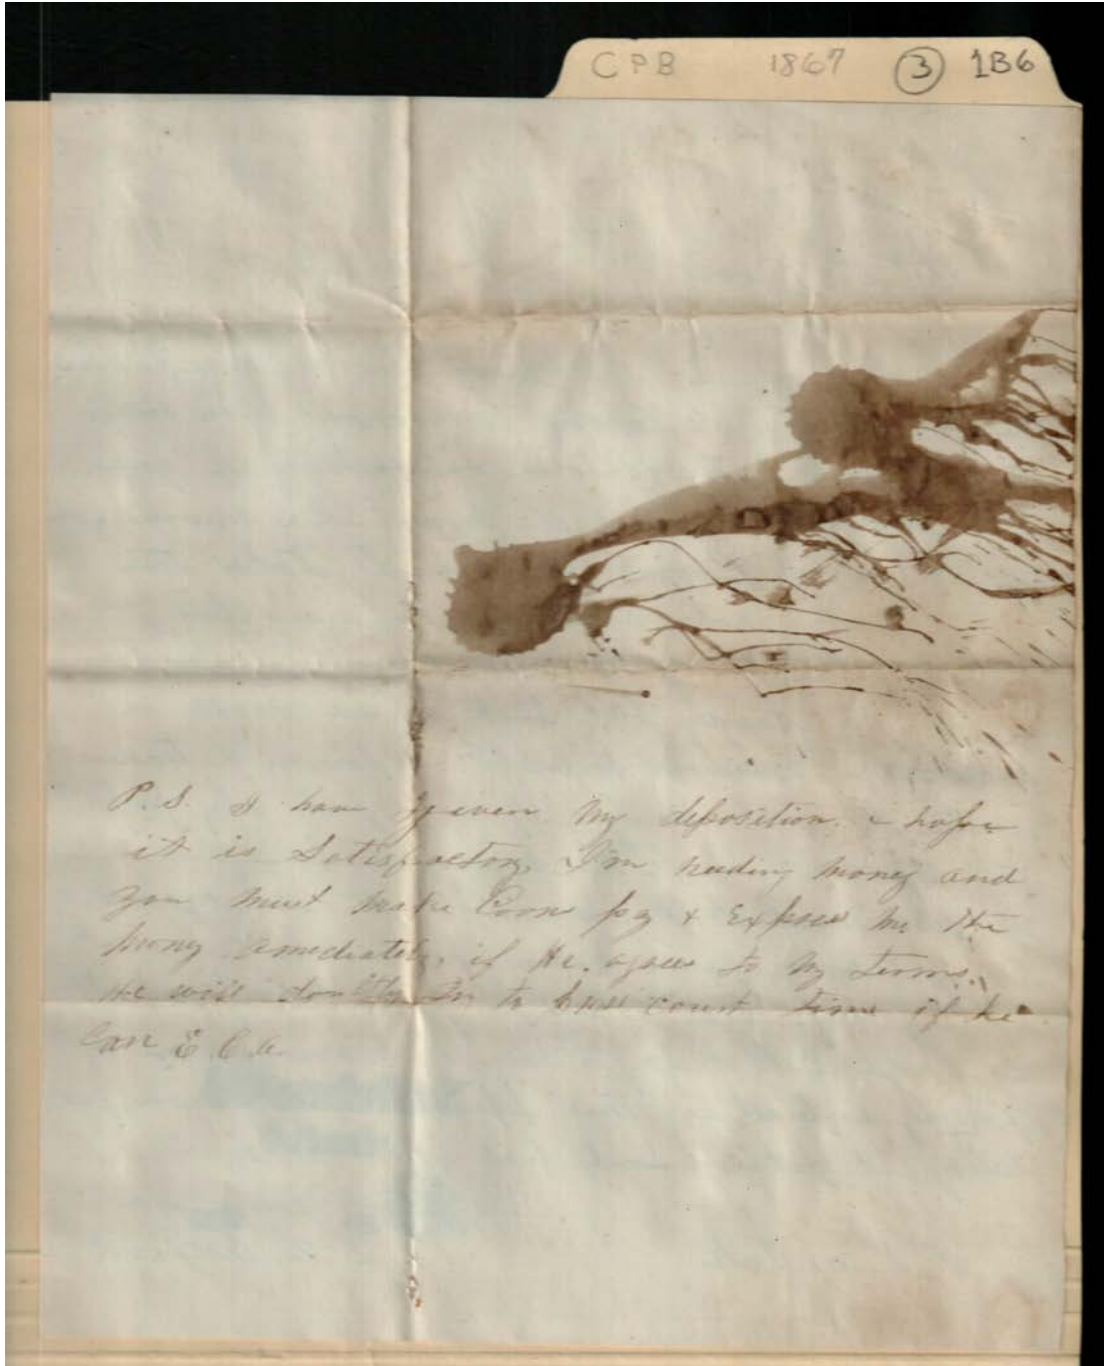 CPB 1867 3 1B6
P.S. I have given my deposition. I hope
it is Satisfactory, I'm needing money and
you must make Coon pay & Express me the
mony amediately, if He. agrees to my terms.
He will try to have court time if he
Can E. C. C.